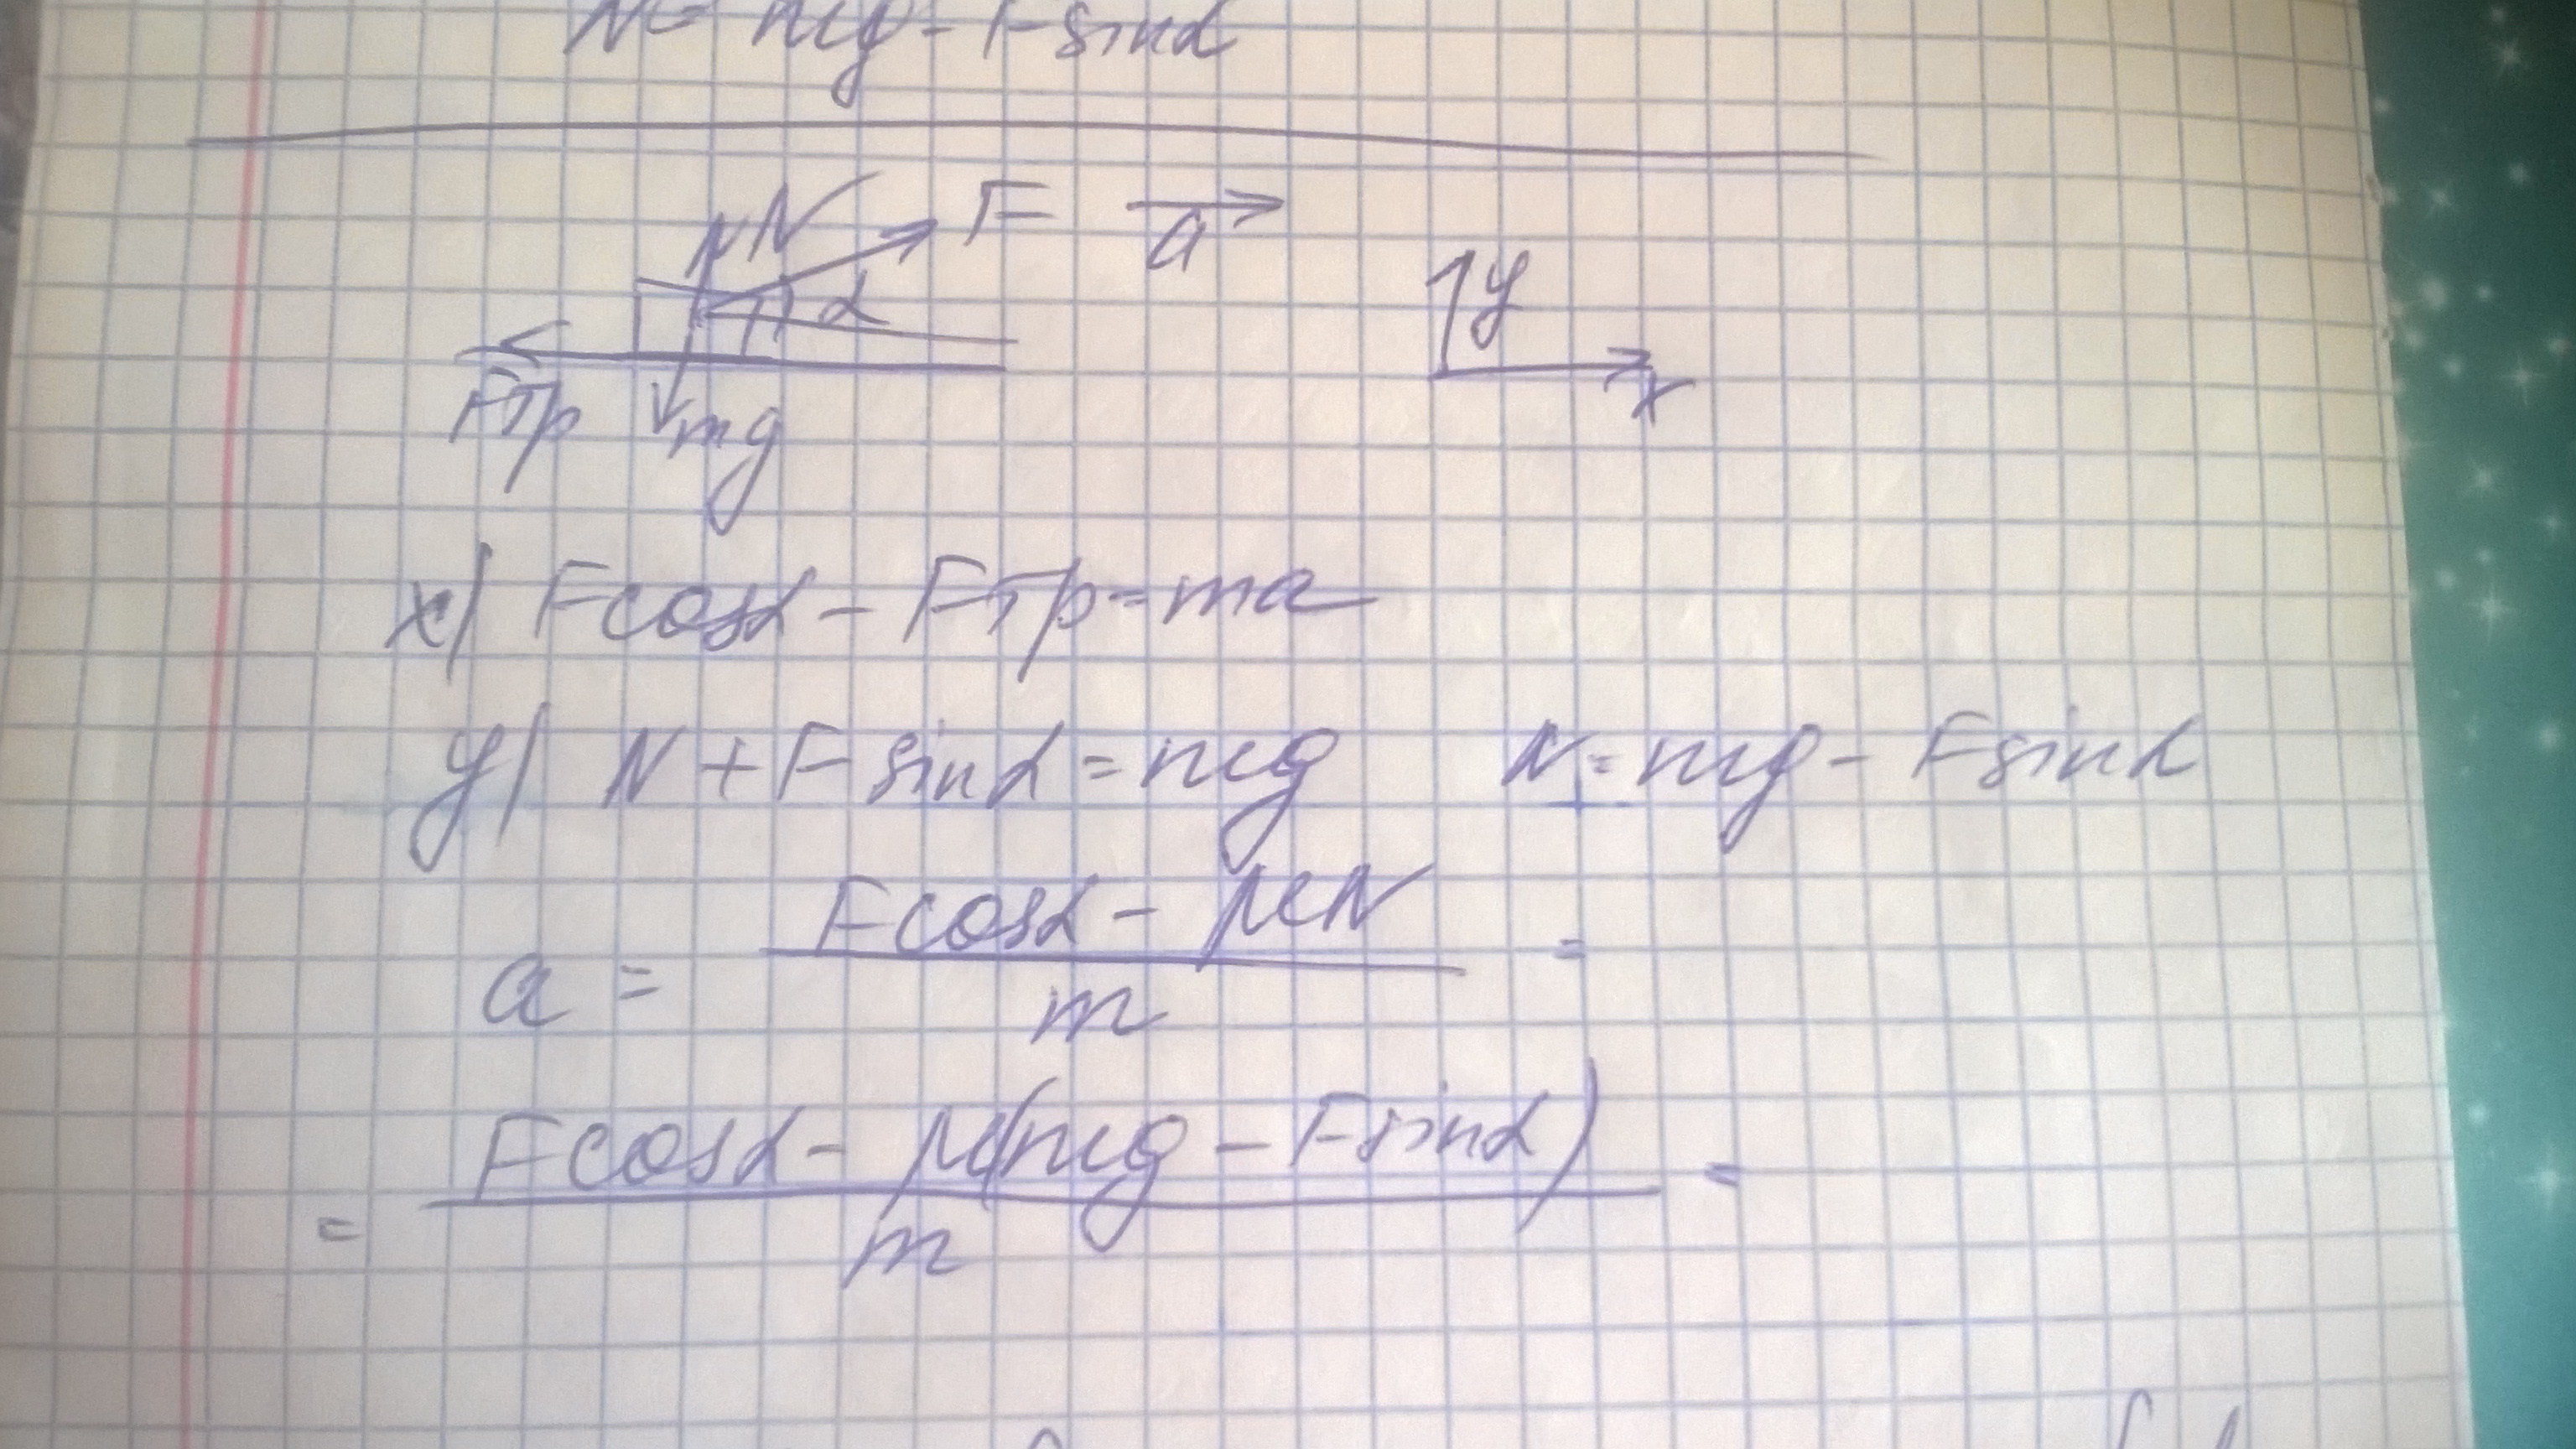 N = mg - Fsinα
N F a
α y
Fтр mg x
x| Fcosα - Fтр = ma
y| N + Fsinα = mg N = mg - Fsinα
a = Fcosα - μN / m =
= Fcosα - μ(mg - Fsinα) / m =